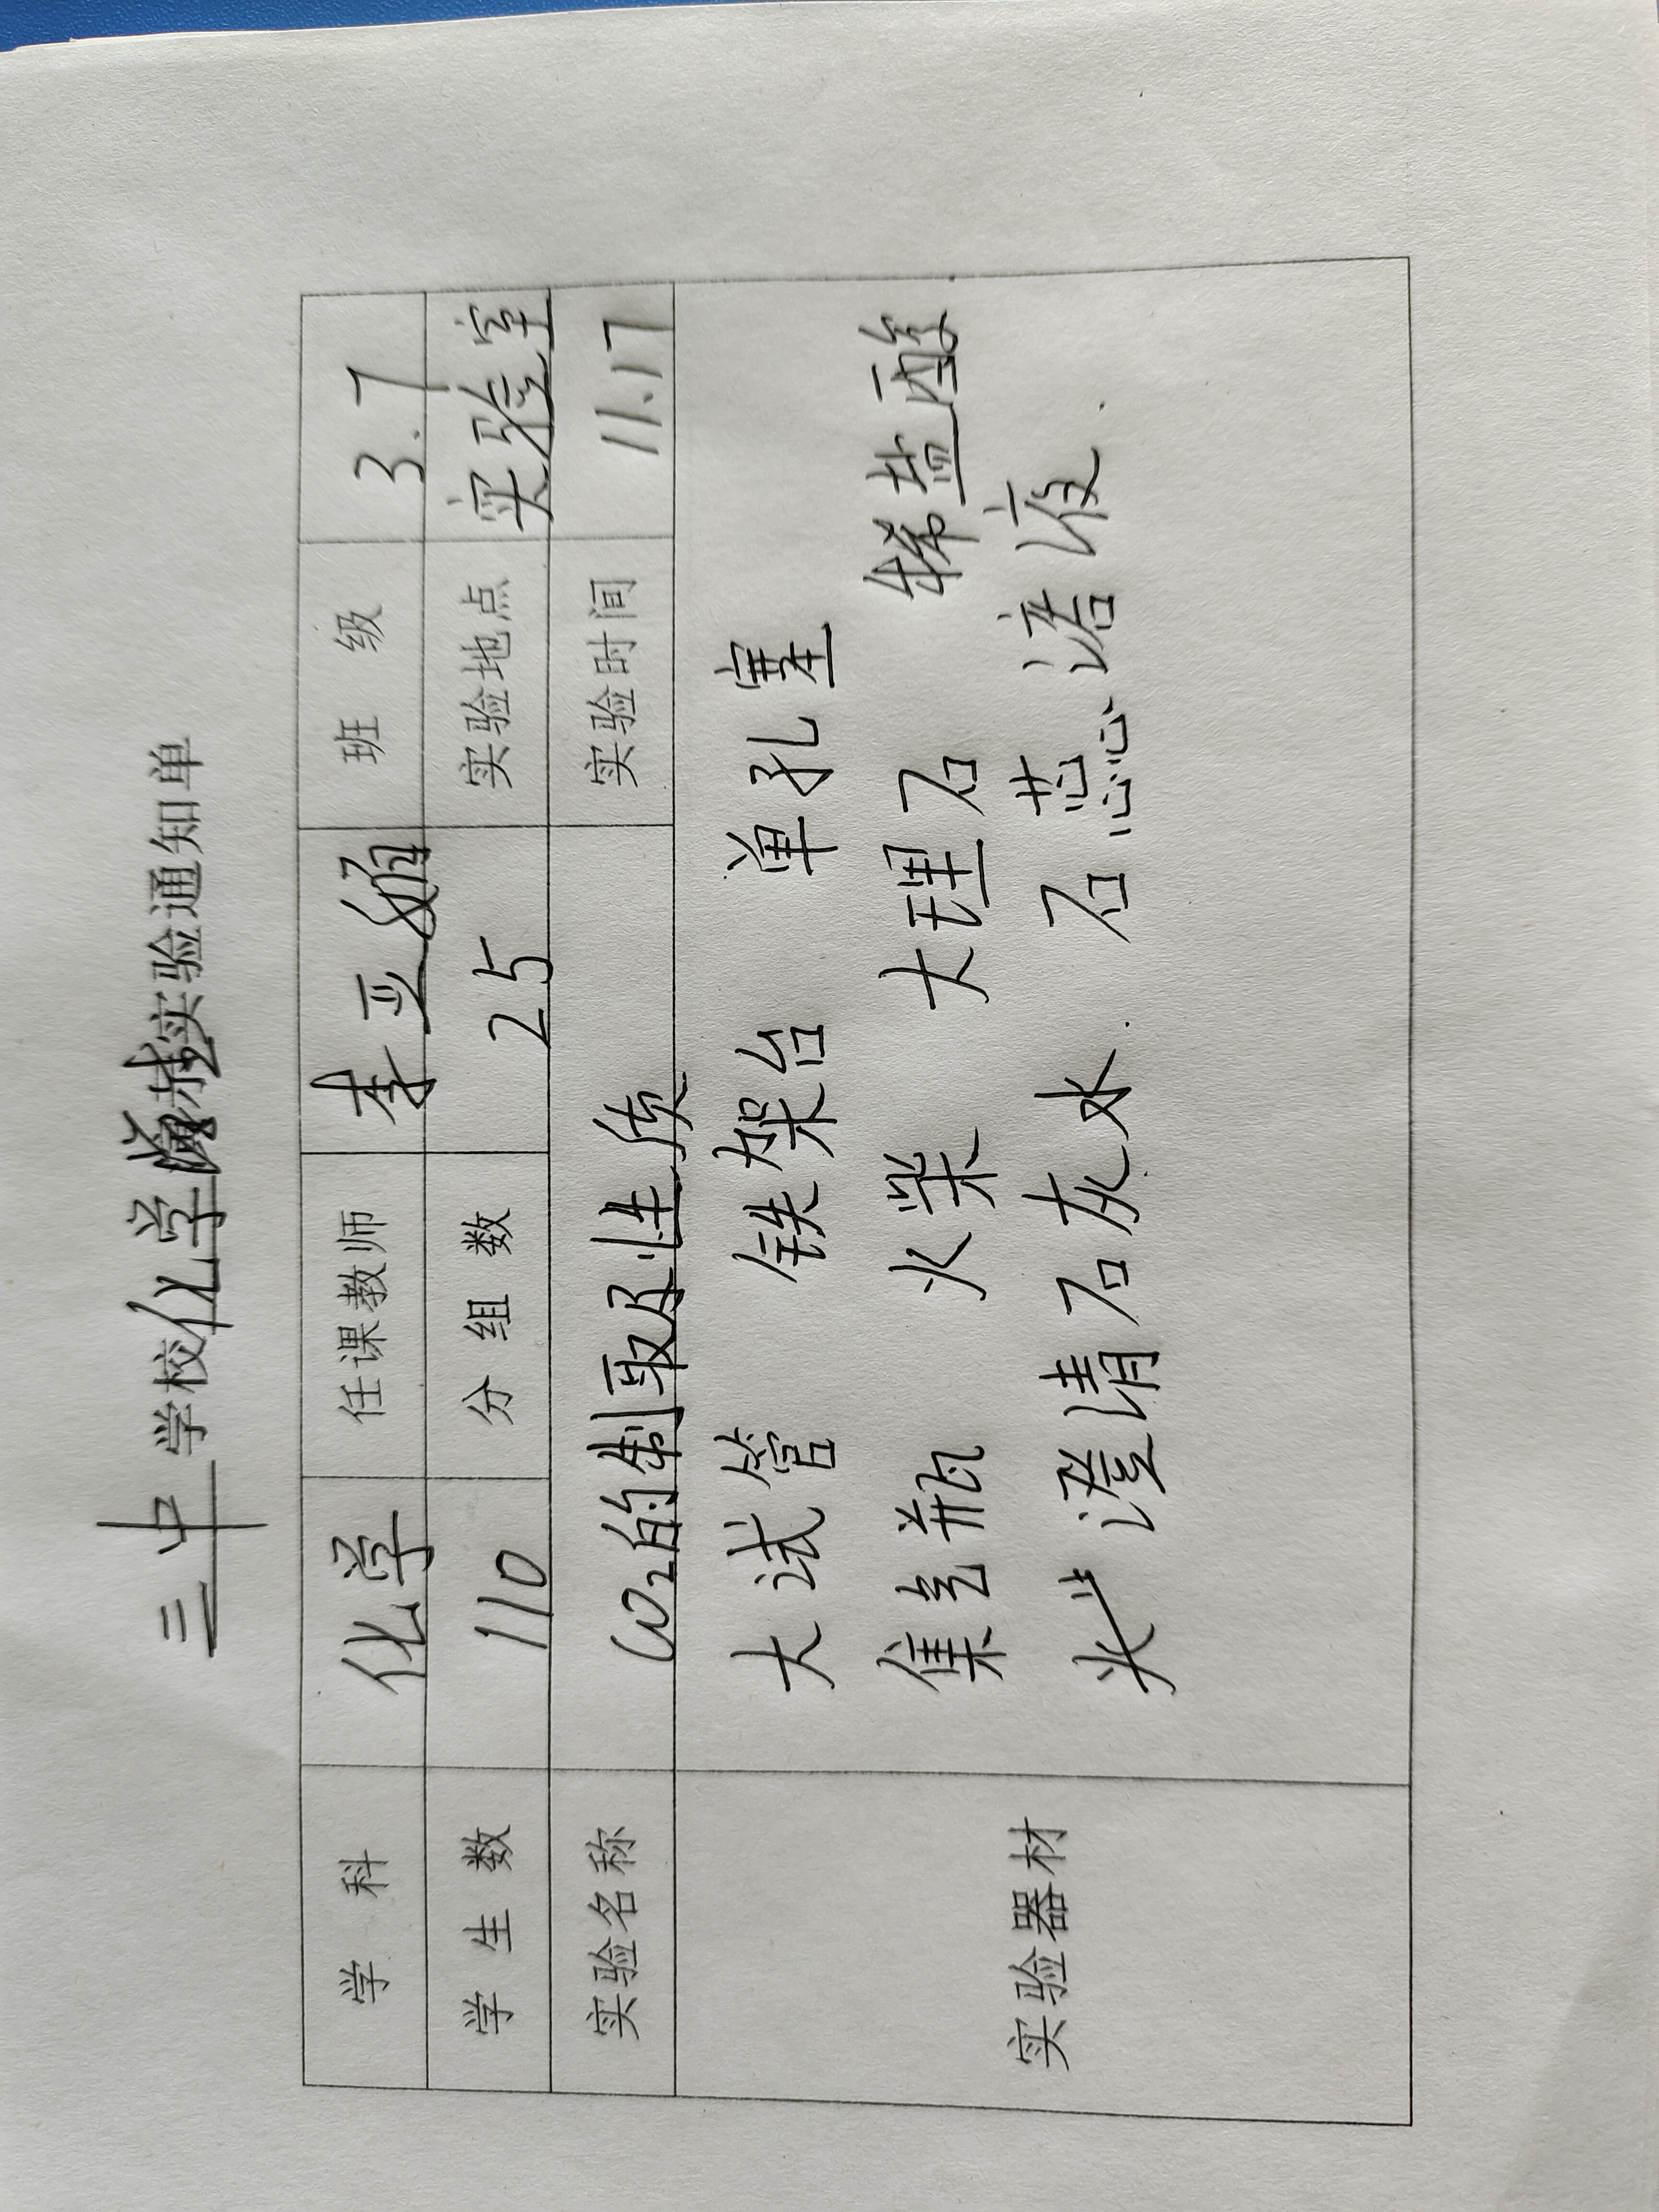 三中学校化学实验通知单
学 科 化学 任课教师 李亚 班 级 3.7
学 生 数 110 分 组 数 25 实验地点 实验室
实验名称 CO2的制取及性质 实验时间 11.17
实验器材
大试管 铁架台 单孔塞
集气瓶 火柴 大理石 稀盐酸
米 澄清石灰水. 石蕊溶液.